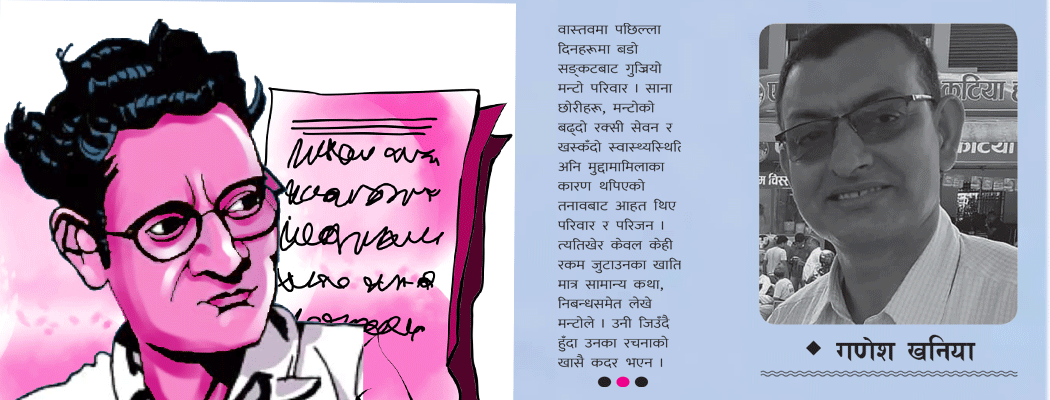 वास्तवमा पछिल्ला
दिनहरूमा बडो
सङ्कटबाट गुज्रियो
मन्टो परिवार । साना
छोरीहरू, मन्टोको
बढ्दो रक्सी सेवन र
खस्कँदो स्वास्थ्यस्थिति
अनि मुद्दामामिलाका
कारण थपिएको
तनावबाट आहत थिए
परिवार र परिजन ।
त्यतिखेर केवल केही
रकम जुटाउनका खाति
मात्र सामान्य कथा,
निबन्धसमेत लेखे
मन्टोले । उनी जिउँदै
हुँदा उनका रचनाको
खासै कदर भएन ।
कटिया
कटिया
गणेश खनिया